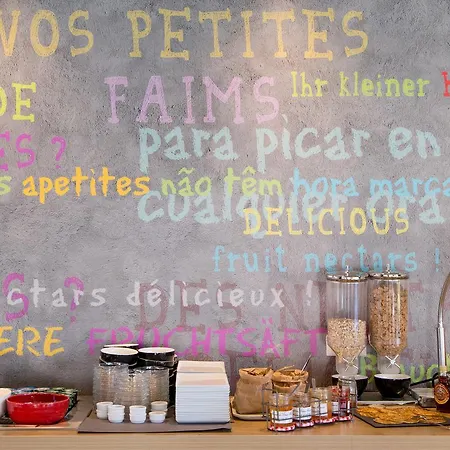 VOS PETITES
DE FAIMS Ihr kleiner
para picar en
ES ?
s apetites não têm hora marca
cualquier ora
DELICIOUS
fruit nectars !
S ? DES N
Stars délicieux !
ERE FRUCHTSÄFT